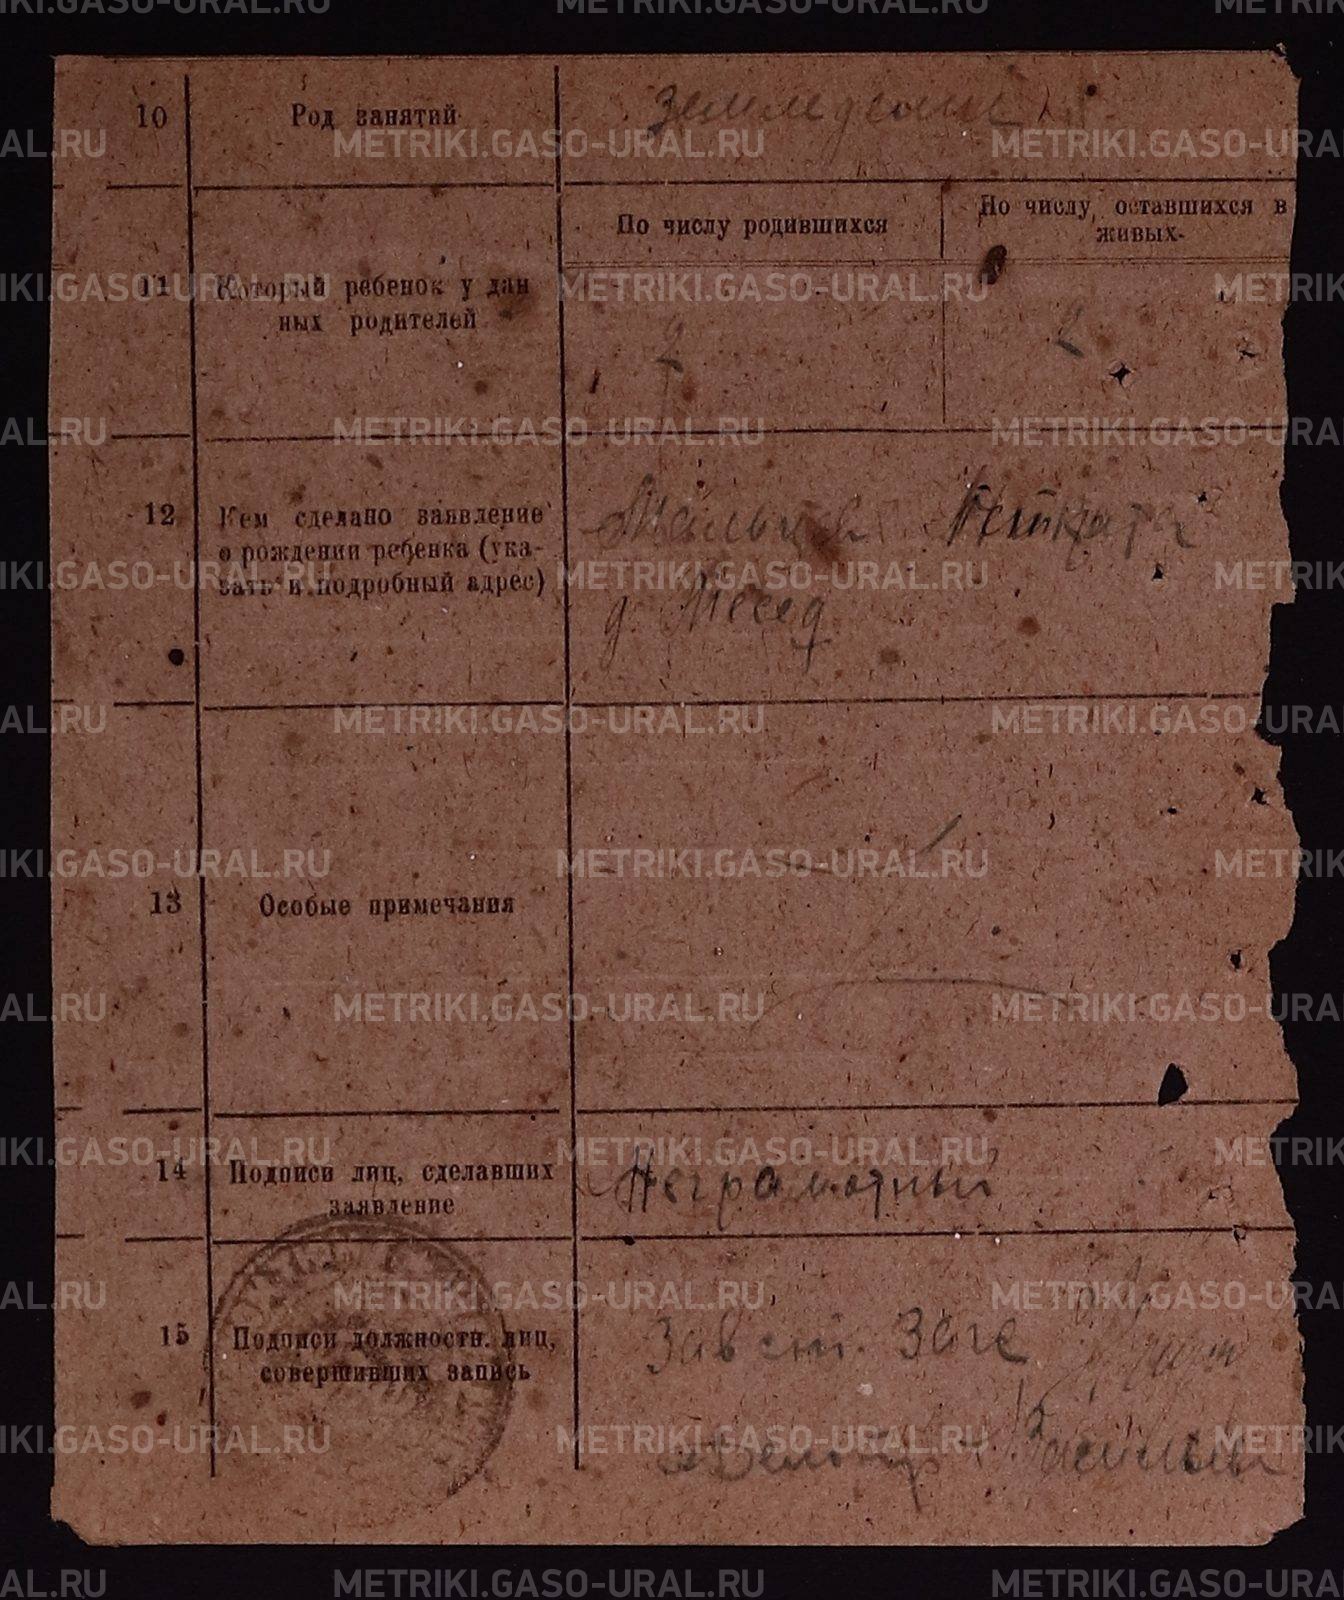 10 Род занятий земледелие
По числу родившихся
По числу, оставшихся в
живых.
11 Который ребенок у дан
ных родителей
2 2
12 Кем сделано заявление
о рождении ребенка (ука-
зать и подробный адрес)
Мальцев
д. Месед
13 Особые примечания
14 Подписи лиц, сделавших
заявление
Неграмотный
15 Подписи должностн. лиц,
совершивших запись
Зав Загс
Делопр. Васильев
METRIKI.GASO-URAL.RU